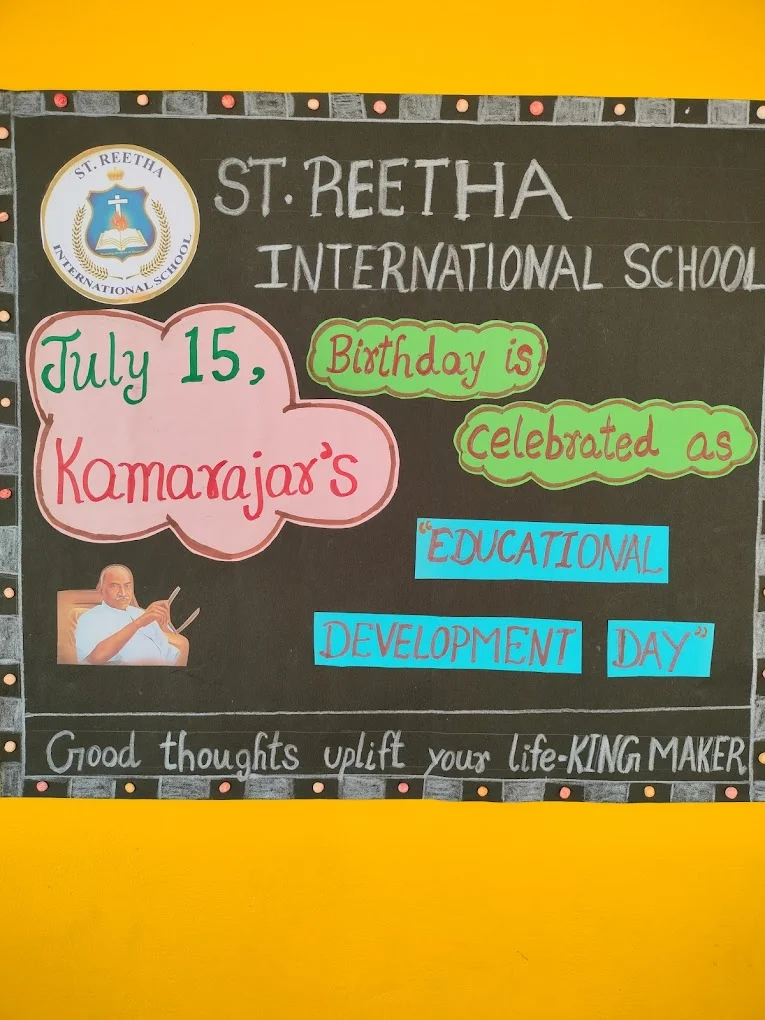 ST. REETHA
INTERNATIONAL SCHOOL
ST. REETHA
INTERNATIONAL SCHOOL
July 15,
Kamarajar's
Birthday is
celebrated as
"EDUCATIONAL
DEVELOPMENT DAY"
Good thoughts uplift your life-KING MAKER